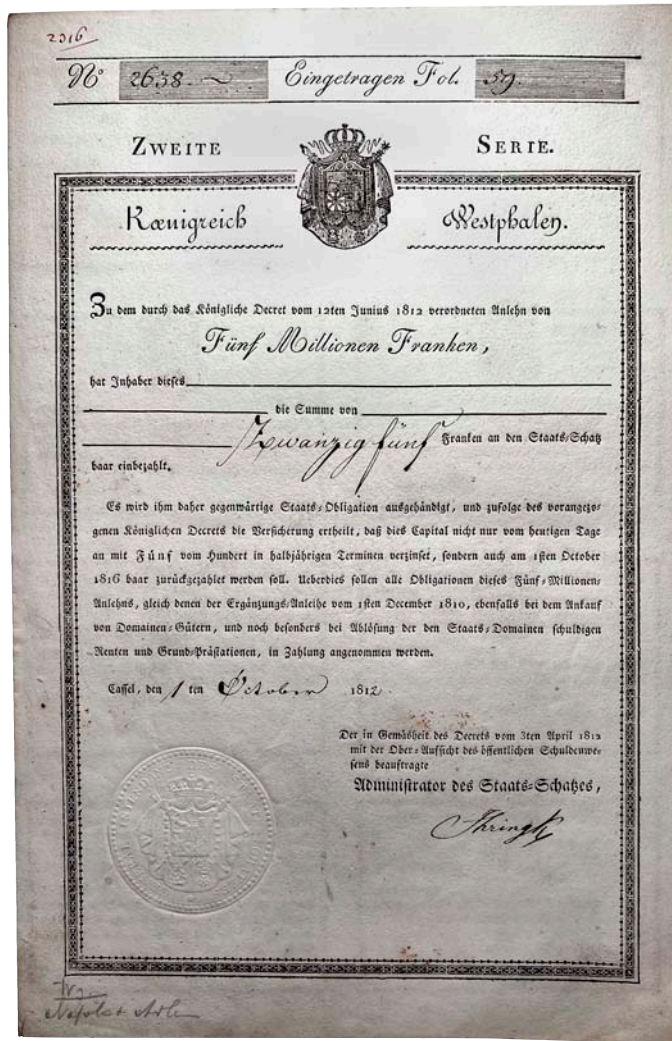 2316
No 2638. Eingetragen Fol. 59.
ZWEITE SERIE.
Kœnigreich Westphalen.
Zu dem durch das Königliche Decret vom 12ten Junius 1812 verordneten Anlehn von
Fünf Millionen Franken,
hat Inhaber dieses
die Summe von
Zwanzig fünf Franken an den Staats-Schatz
baar einbezahlt.
Es wird ihm daher gegenwärtige Staats-Obligation ausgehändigt, und zufolge des vorangezo-
genen Königlichen Decrets die Versicherung ertheilt, daß dies Capital nicht nur vom heutigen Tage
an mit Fünf vom Hundert in halbjährigen Terminen verzinset, sondern auch am 1sten October
1816 baar zurückgezahlt werden soll. Ueberdies sollen alle Obligationen dieses Fünf-Millionen-
Anlehns, gleich denen der Ergänzungs-Anleihe vom 1sten December 1810, ebenfalls bei dem Ankauf
von Domainen-Gütern, und noch besonders bei Ablösung der den Staats-Domainen schuldigen
Renten und Grund-Prästationen, in Zahlung angenommen werden.
Cassel, den 1 ten October 1812.
Der in Gemäsheit des Decrets vom 3ten April 1812
mit der Ober-Aufsicht des öffentlichen Schuldenwe-
sens beauftragte
Administrator des Staats-Schatzes,